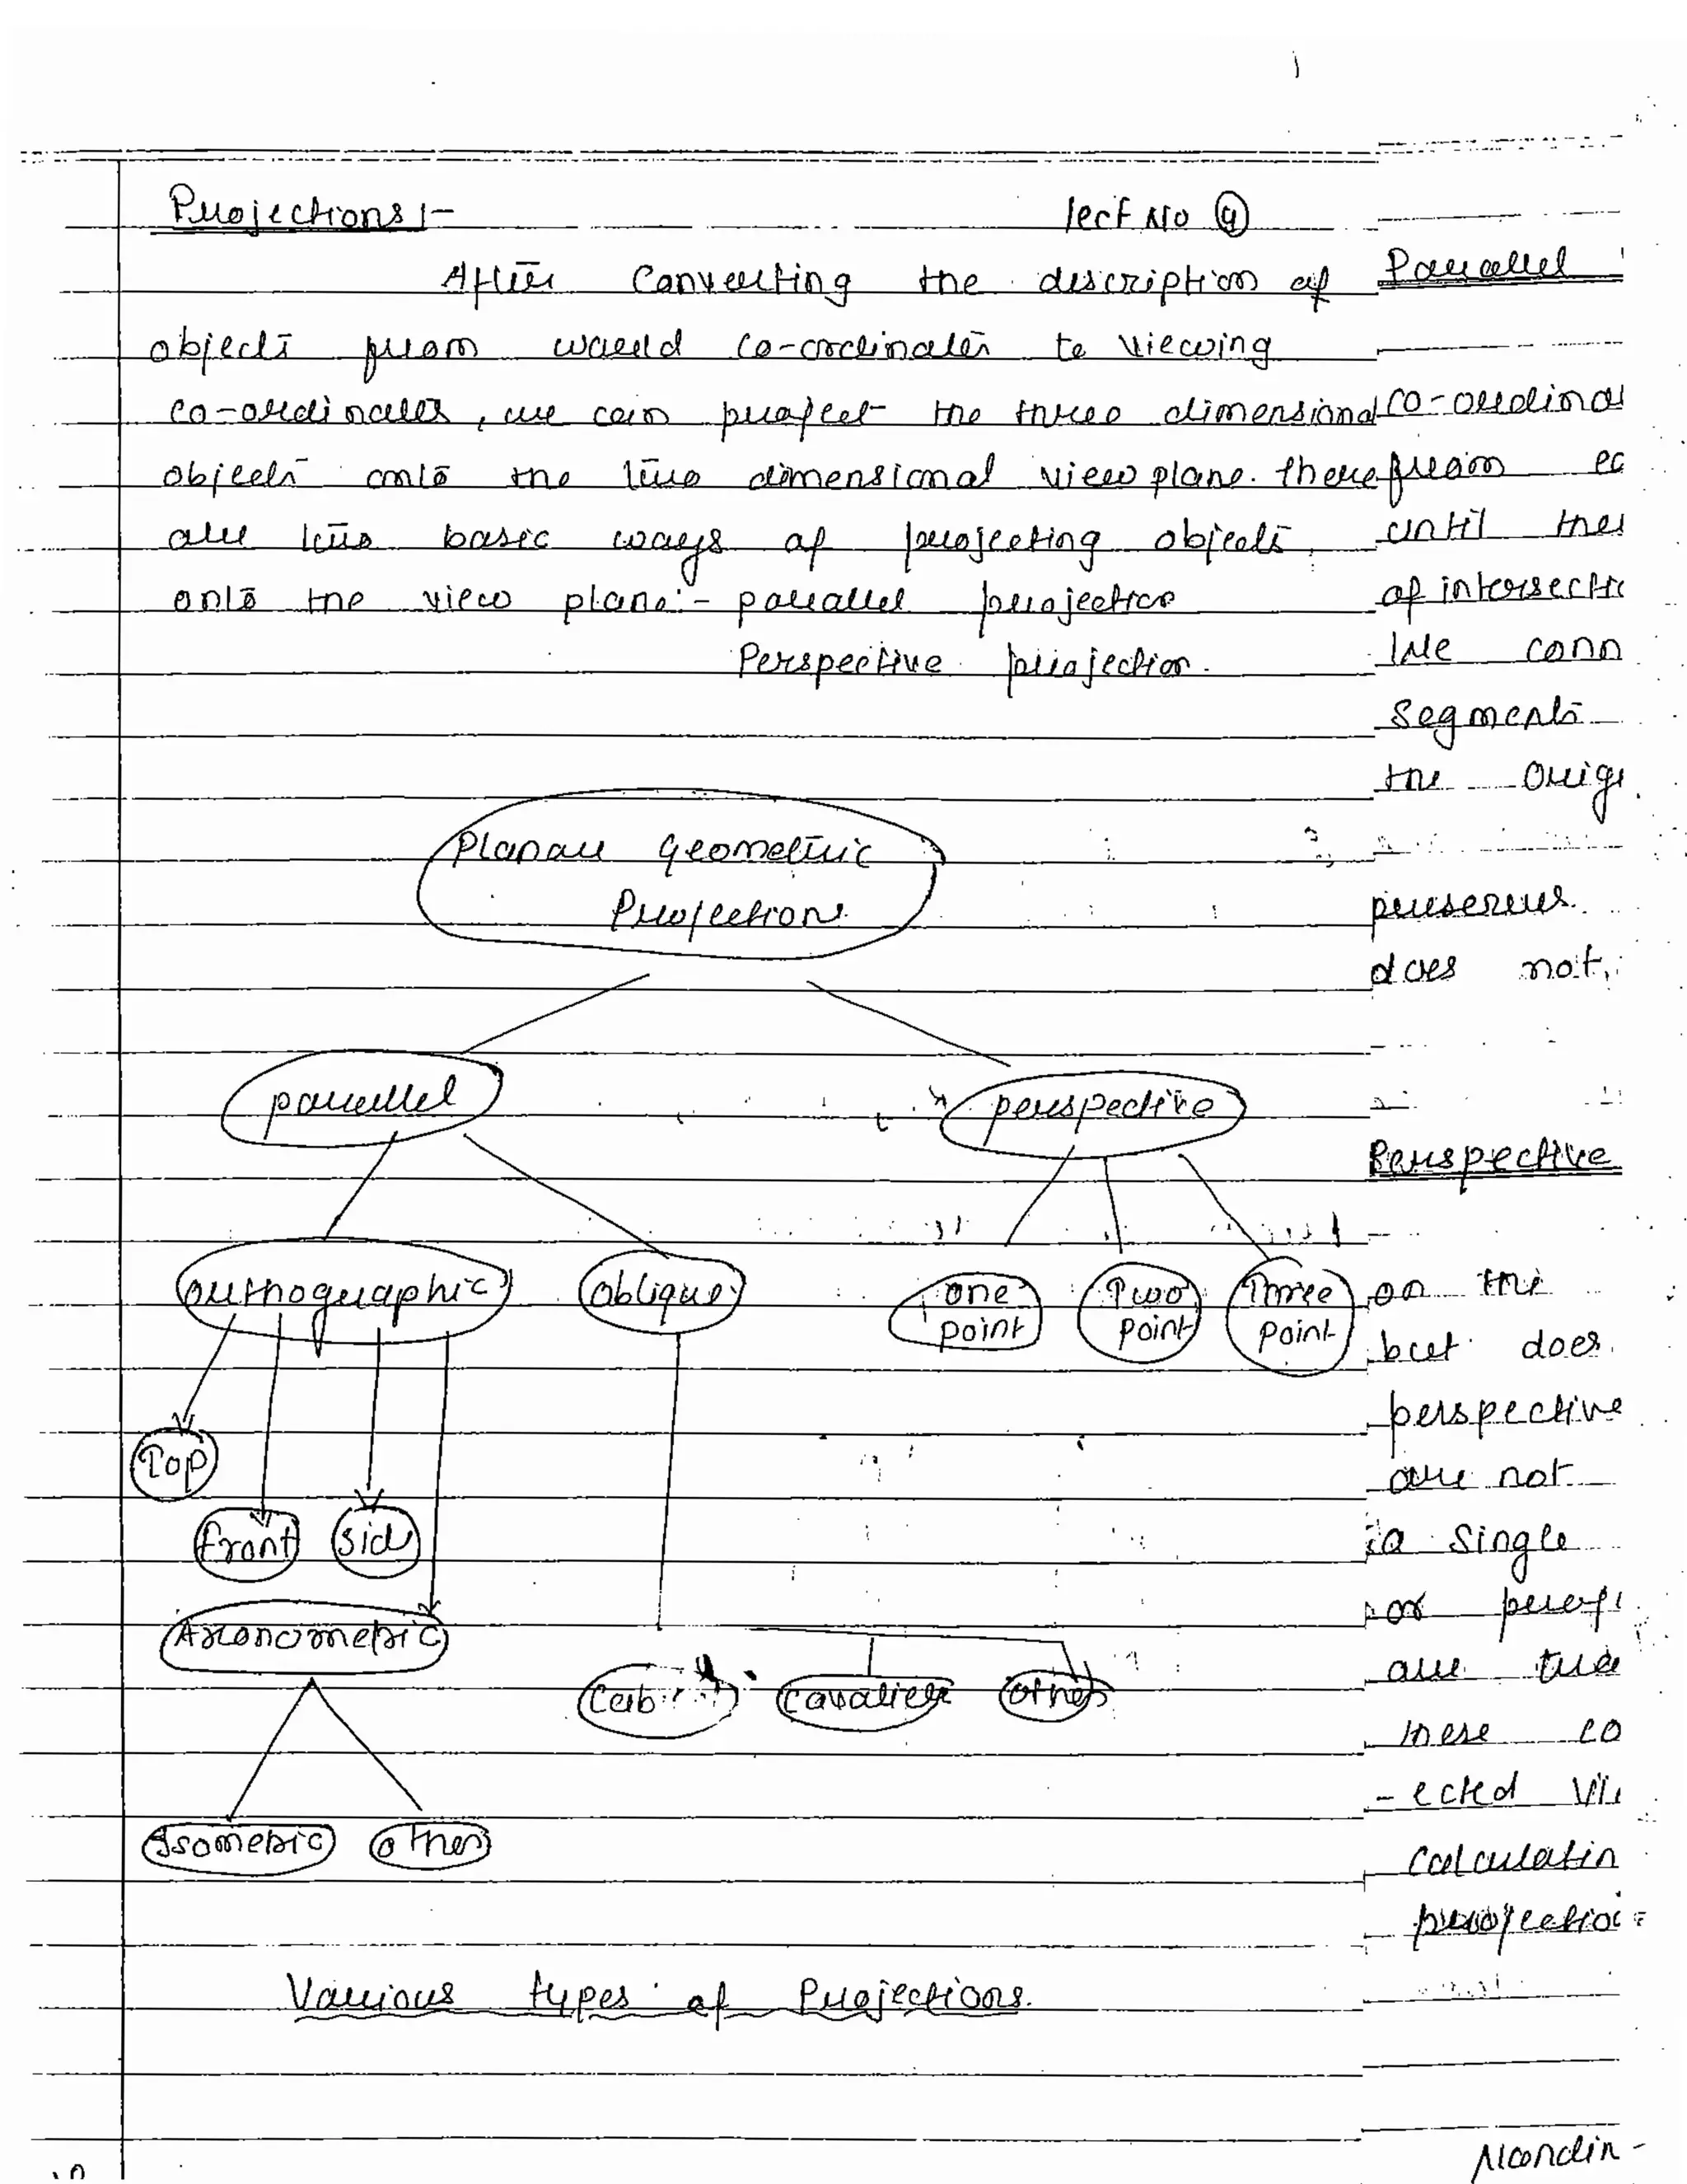 Projections :-
Lect No 4
After Converting the description of
objects from world co-ordinates to viewing
co-ordinates, we can project the three dimensional
objects onto the two dimensional view plane. There
are two basic ways of projecting objects
onto the view plane :- parallel projection
Perspective projection.
Planar Geometric
Projections
parallel
perspective
orthographic
oblique
one
point
Two
point
Three
point
Top
front
Side
Axonometric
Cavalier
other
Isometric
other
Various types of Projections.
Parallel
co-ordina
from
until
of intersecti
We conn
Segments
the Orig
preserves
does not
Perspective
on the
but does
perspective
are not
a Single
or
are
these co
-ected
Calculatin
projection